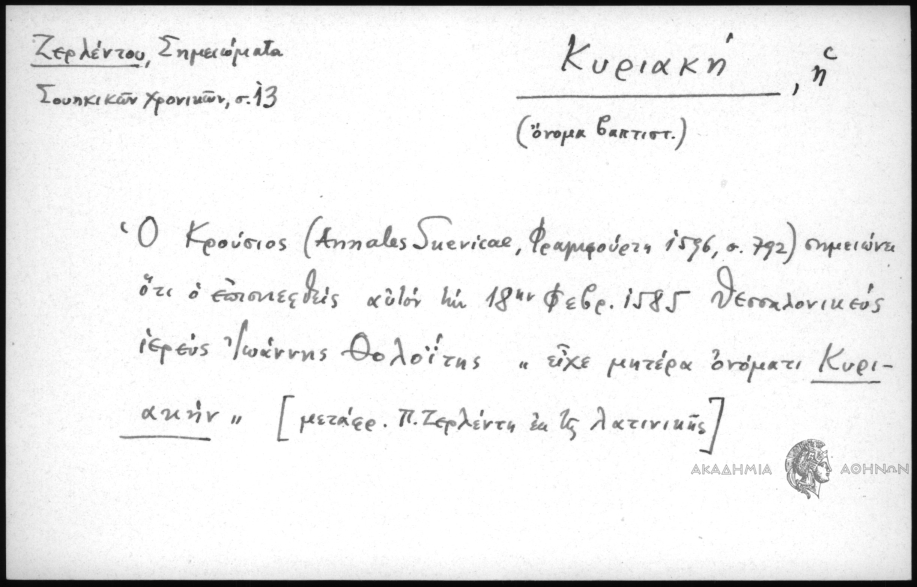 Ζερλέντου, Σημειώματα
Σουηκικῶν χρονικῶν, σ. 13
Κυριακή, ἡ
(ὄνομα βαπτιστ.)
Ὁ Κρούσιος (Annales Suevicae, Φραγκφούρτη 1596, σ. 792) σημειώνει
ὅτι ὁ ἐπισκεφθείς αὐτόν τήν 18ην Φεβρ. 1585 Θεσσαλονικεύς
ἱερεύς Ἰωάννης Θολοΐτης „ εἶχε μητέρα ὀνόματι Κυρι-
ακήν „ [μετάφρ. Π. Ζερλέντη ἐκ τῆς λατινικῆς]
ΑΚΑΔΗΜΙΑ ΑΘΗΝΩΝ